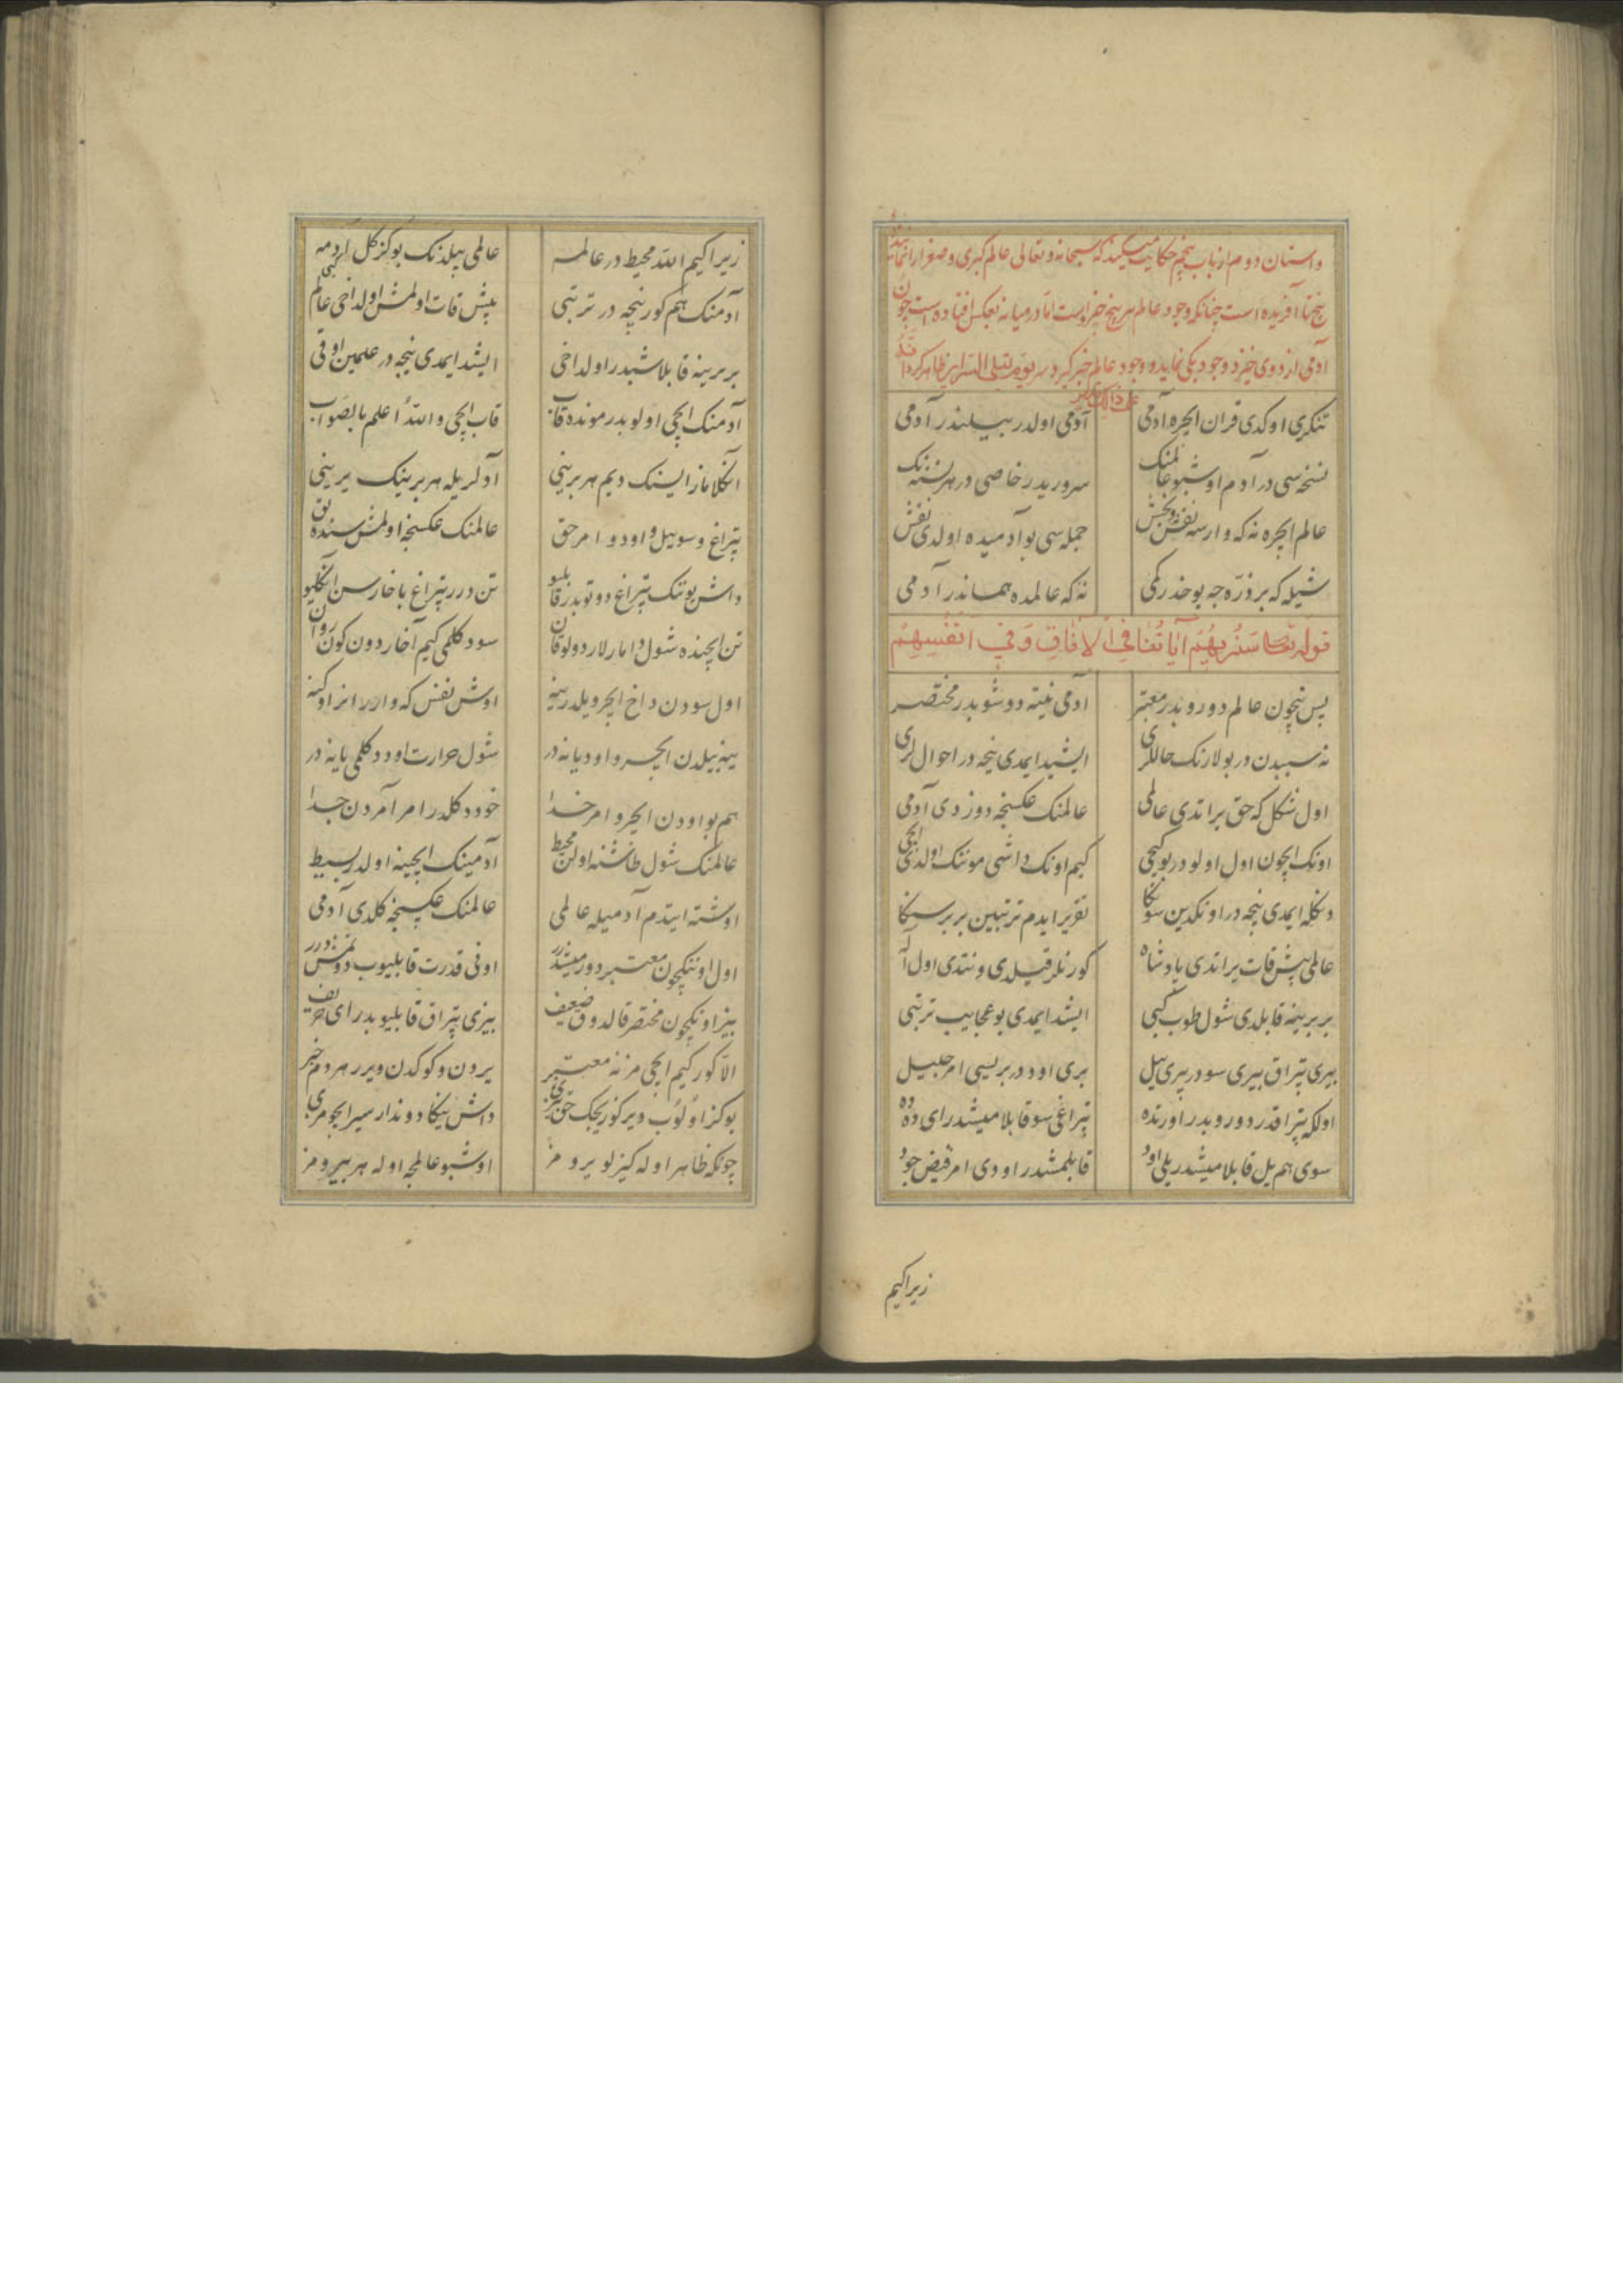 داستان دوم از باب پنجم حکایت میکند که سبحانه و تعالی عالم کبری و صغرا را
پنج تا آفریده است چنانکه وجود عالم هر پنج چیز است اما در میانه بعکس افتاده است چون
آدمی از دوی خیزد وجود یکی نماید و وجود عالم خبر گیرد سر یوم تبلی السرایر ظاهر کردد
تنکری اوکدی قران ایچره آدمی آدمی اولدر بیلندر آدمی
نسخه سی در آدم اوشبو عالمنک سرور یدر خاصی در هر نسنه نک
عالم ایچره نه که وارسه نقش جمله سی بو آدمیده اولدی نقش
شیله که بر ذره جه یوخدر کمی نه که عالمده هماندر آدمی
قوله تعالی سَنُرِيهِمْ آيَاتُنَا فِي الْآفَاقِ وَفِي أَنْفُسِهِمْ
پس نیچون عالم دورو بدر معتبر آدمی نیته دوشوبدر مختصر
نه سببدن در بولارنک حاللری ایشید ایمدی نیجه در احوال لری
اول شکل که حق یراتدی عالمی عالمنک عکسنجه دوزدی آدمی
اونک ایچون اول اولو در بو کیچی کیم اونک داشی موننک اولدی ایچی
دنکله ایمدی نیجه در اونکدین سونکا تقریر ایدم ترتبین بر بر سنکا
عالمی پیش قات یراتدی پادشاه کورنلر قیلدی و نتدی اول اله
بر برینه قابلدی شول طوب کبی ایشد ایمدی بو عجایب ترتبی
بیری پتراق بیری سو در بیری ییل بری اود در بریسی امر جلیل
اولکه پتراقدر دورو بدر اورتده پتراغی سو قابلامیشدر ای دده
سوی هم ییل قابلامیشدر ییلی اود قابلمشدر اودی امر فیض جود
زیرا کیم
زیرا کیم الله محیط در عالمه عالمی بیلدنک بو کز کل ادمه
آدمنک هم کور نیجه در ترتبی پیش قات اولمش اولداخی عالم کبی
بر برینه قابلاشبدر اولداخی ایشد ایمدی نیجه در علمین اوقی
آدمنک ایچی اولوبدر مونده قاب قاب ایچی والله اعلم بالصواب
آنکلاماز ایسنک دیم هر برینی آدلریله هر برینک یرینی
پتراغ و سو ییل و اود و امر حق عالمنک عکسنجه اولمش سنده
داش بو تنک پتراغ دوتوبدر تن درر پتراغ باخارسن انکلیو
تن ایچنده شول دامارلار دولو قان سود کلمی کیم آخار دون کون روان
اول سودن داخ ایچرو یلدر ینه اوش نفس که وارر انر اد
ینه ییلدن ایچرو اود یانه در شول حرارت اود دکلمی یا نه در
هم بو اودن ایچرو امر خدا خود دکلدر امر آمردن جدا
عالمنک شول طاشنه اولن محیط آدمینک ایچینه اولدر بسیط
اوشته ایتدم آدمیله عالمی عالمنک عکسنجه کلدی آدمی
اول اوننکچون معتبر دورمیشدر اونی قدرت قابلیوب دوتمشدرر
بیز اونکچون مختصر قالدوق ضعیف بیزی پتراق قابلیوبدر ای حریف
الا کور کیم ایچی مزنه معتبر یردن و کوکدن ویرر هر دم خبر
بو کز اولوب ویر کوریجک داش ینکا دوندار سیر ایچومزی
چونکه ظاهر اوله کیزلو یرومز اوشبو عالمجه اوله هر بیرومز